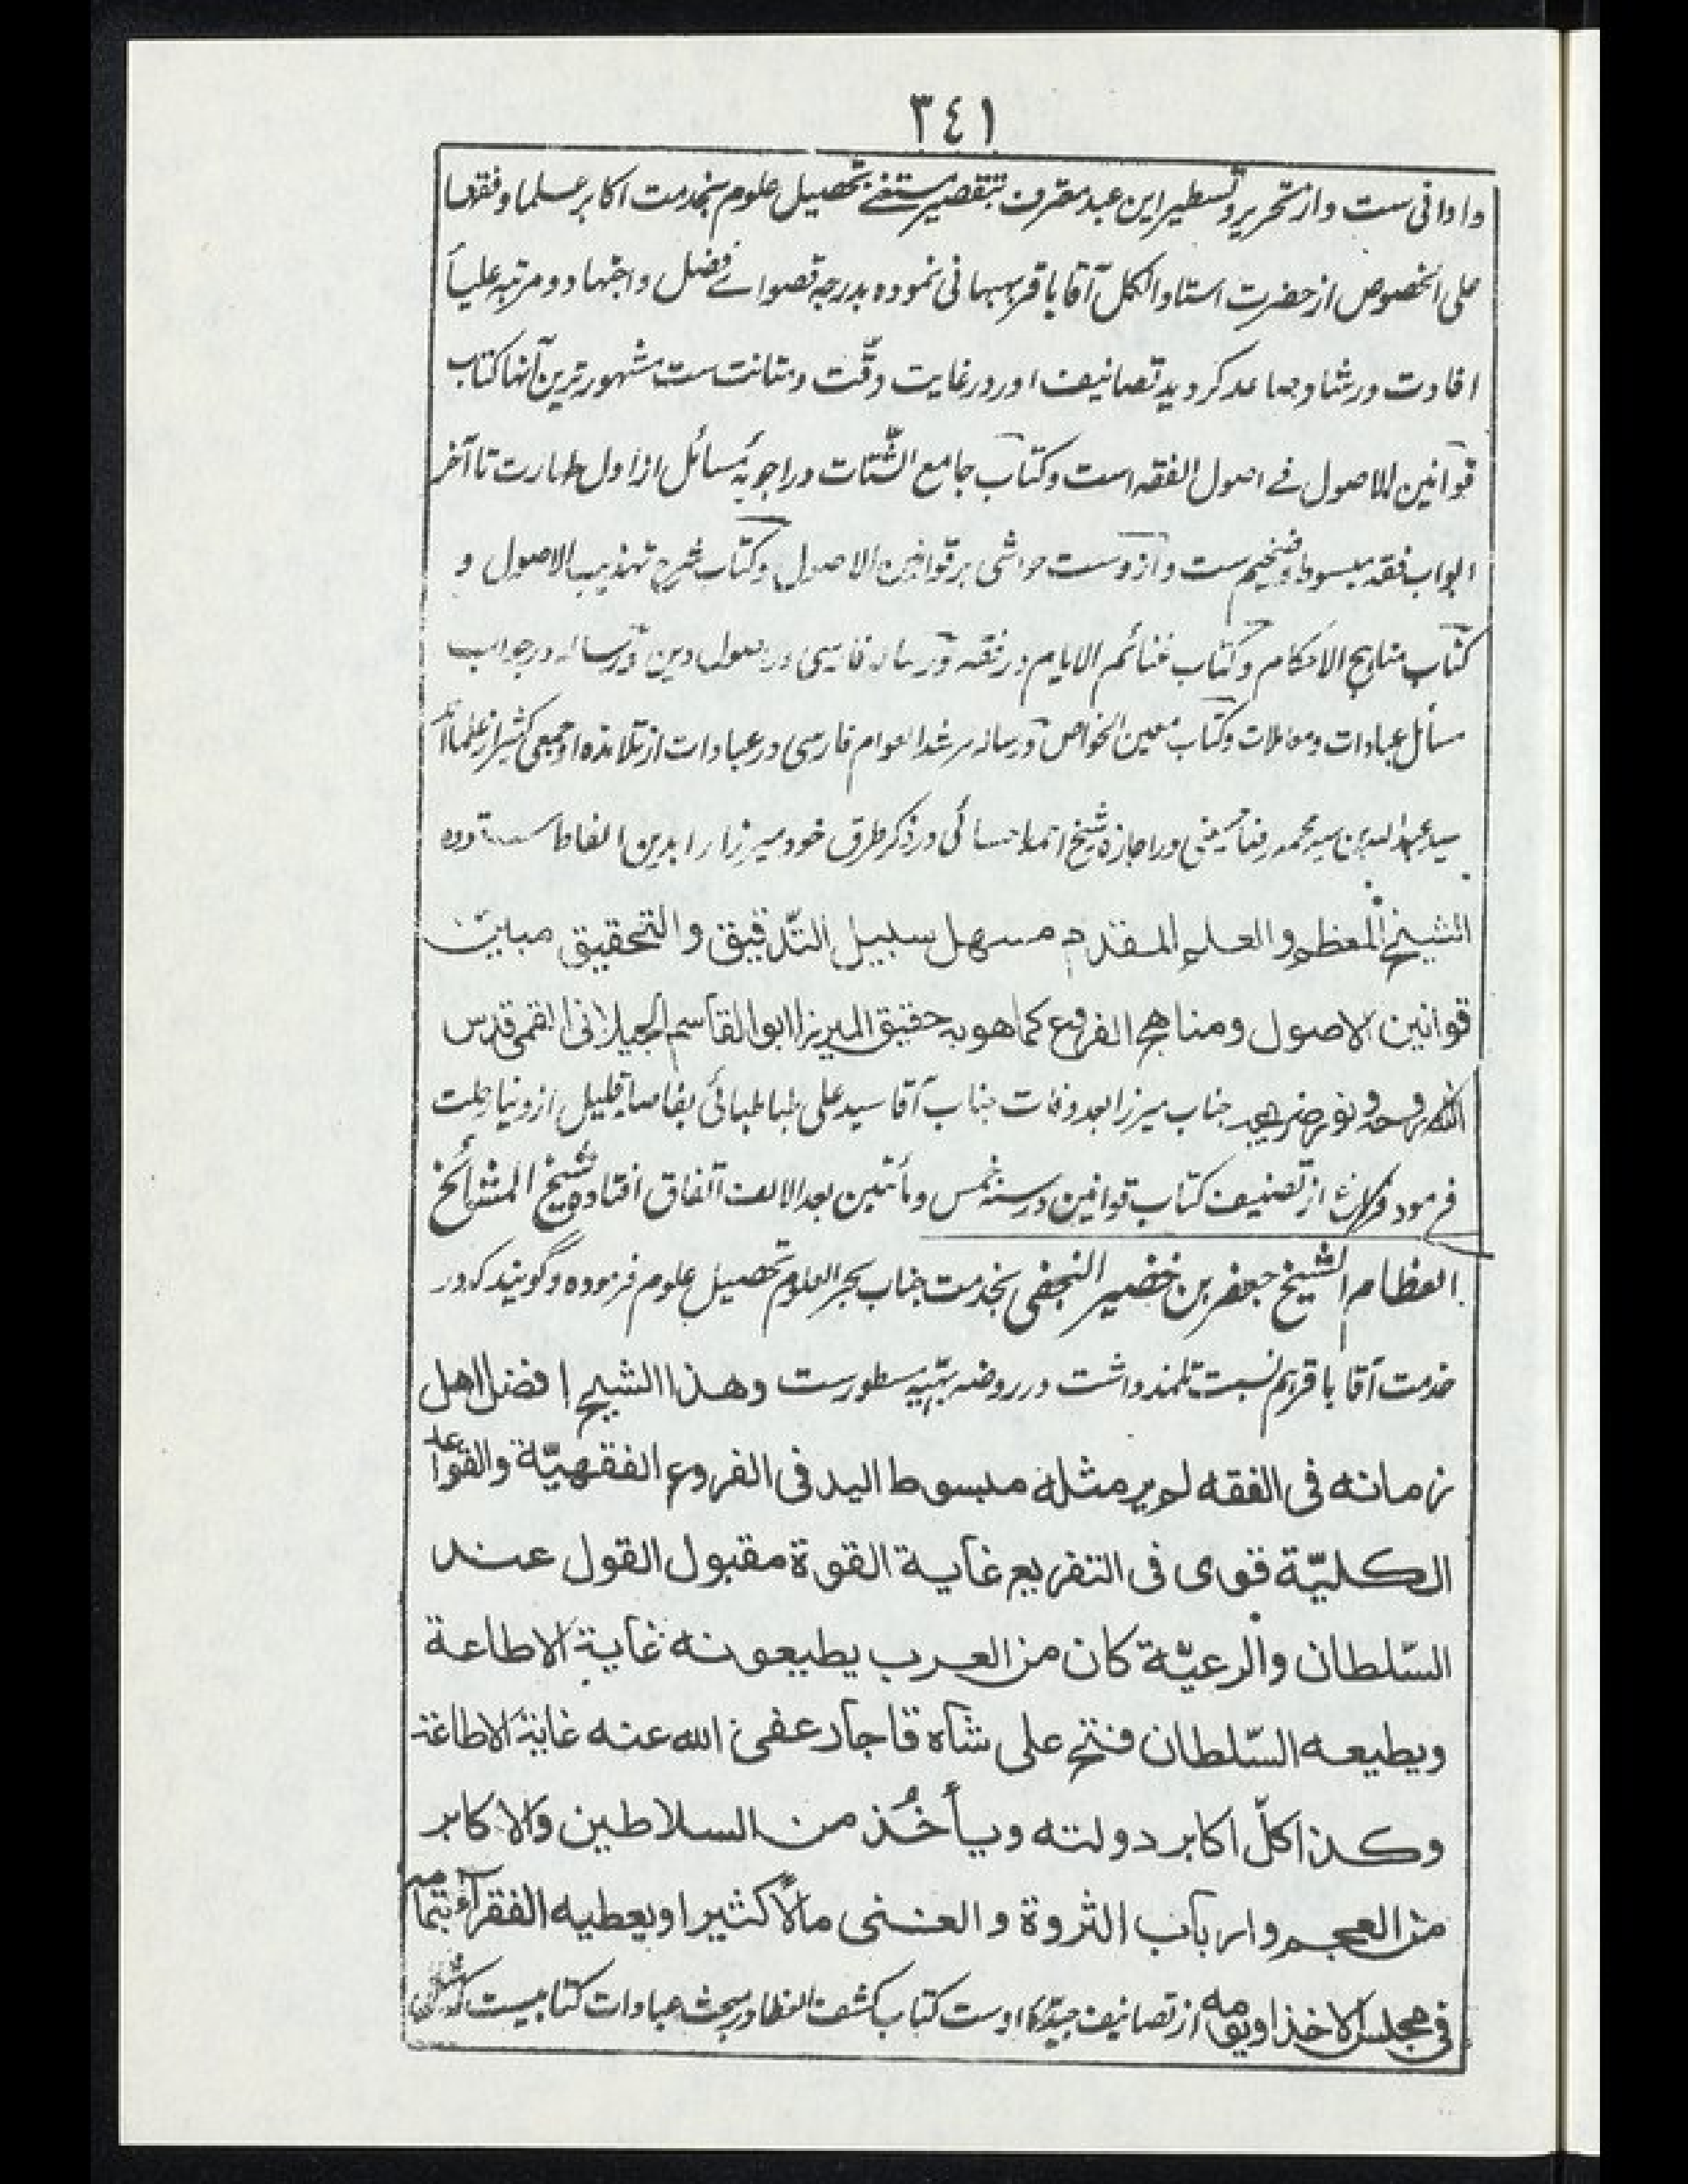 ٣٤١
وادانی ست واز تحریر و تسطیر این عبد معترف بتقصیر مستغنے بتحصیل علوم بخدمت اکابر علما و فقها
علی الخصوص از حضرت استاد الکل آقا باقر بهبهانی نموده بدرجه قصوائے فضل و اجتهاد و مرتبه علیاً
افادت و رشاد صاعد گردید تصانیف او در غایت دقّت و متانت ست مشهورترین آنها کتاب
قوانین الاصول فے اصول الفقه است و کتاب جامع الشّتات در اجوبهٔ مسائل از اول طهارت تا آخر
ابواب فقه مبسوط و ضخیم ست و از وست حواشی بر قوانین الاصول و کتاب شرح تهذیب الاصول و
کتاب مناهج الاحکام و کتاب غنائم الایام در فقه و رساله فارسی در اصول دین و رساله در جواب
مسائل عبادات و معاملات و کتاب معین الخواص و رساله مرشد العوام فارسی در عبادات از تلامذه او جمعی کثیر از علما اند
سید عبدالله بن سید محمد رضا حسینی در اجازهٔ شیخ احمد احسائی در ذکر طرق خود میرزا را بدین الفاظ ستوده
الشیخ المعظم والعلم المقدم مسهل سبیل التّدقیق والتحقیق مبیّن
قوانین الاصول ومناهج الفروع کما هو به حقیق المیرزا ابو القاسم الجیلانی القمی قدس
الله روحه و نور ضریحه جناب میرزا بعد وفات جناب آقا سید علی طباطبائی بفاصله قلیل از دنیا رحلت
فرمود و فراغ از تصنیف کتاب قوانین در سنه خمس و مأتین بعد الالف اتفاق افتاده شیخ المشائخ
العظام الشیخ جعفر بن خضیر النجفی بخدمت جناب بحر العلوم تحصیل علوم فرموده و گویند که در
خدمت آقا باقر هم نسبت تلمذ داشت در روضه بهیّه مسطورست وهذا الشیخ افضل اهل
زمانه فی الفقه لم یر مثله مبسوط الید فی الفروع الفقهیّة والقواعد
الکلیّة قوی فی التفریع غایة القوة مقبول القول عند
السّلطان والرعیّة کان من العرب یطیعونه غایة الاطاعة
ویطیعه السّلطان فتح علی شاه قاجار عفی الله عنه غایة الاطاعة
وکذا کلّ اکابر دولته ویأخُذ من السلاطین والاکابر
من العجم وارباب الثروة والغنی مالاً کثیرا ویعطیه الفقرآء بتمامه
فی مجلس الاخذ او یومه از تصانیف جیّدهٔ اوست کتاب کشف الغطا در مبحث عبادات کتابیست که